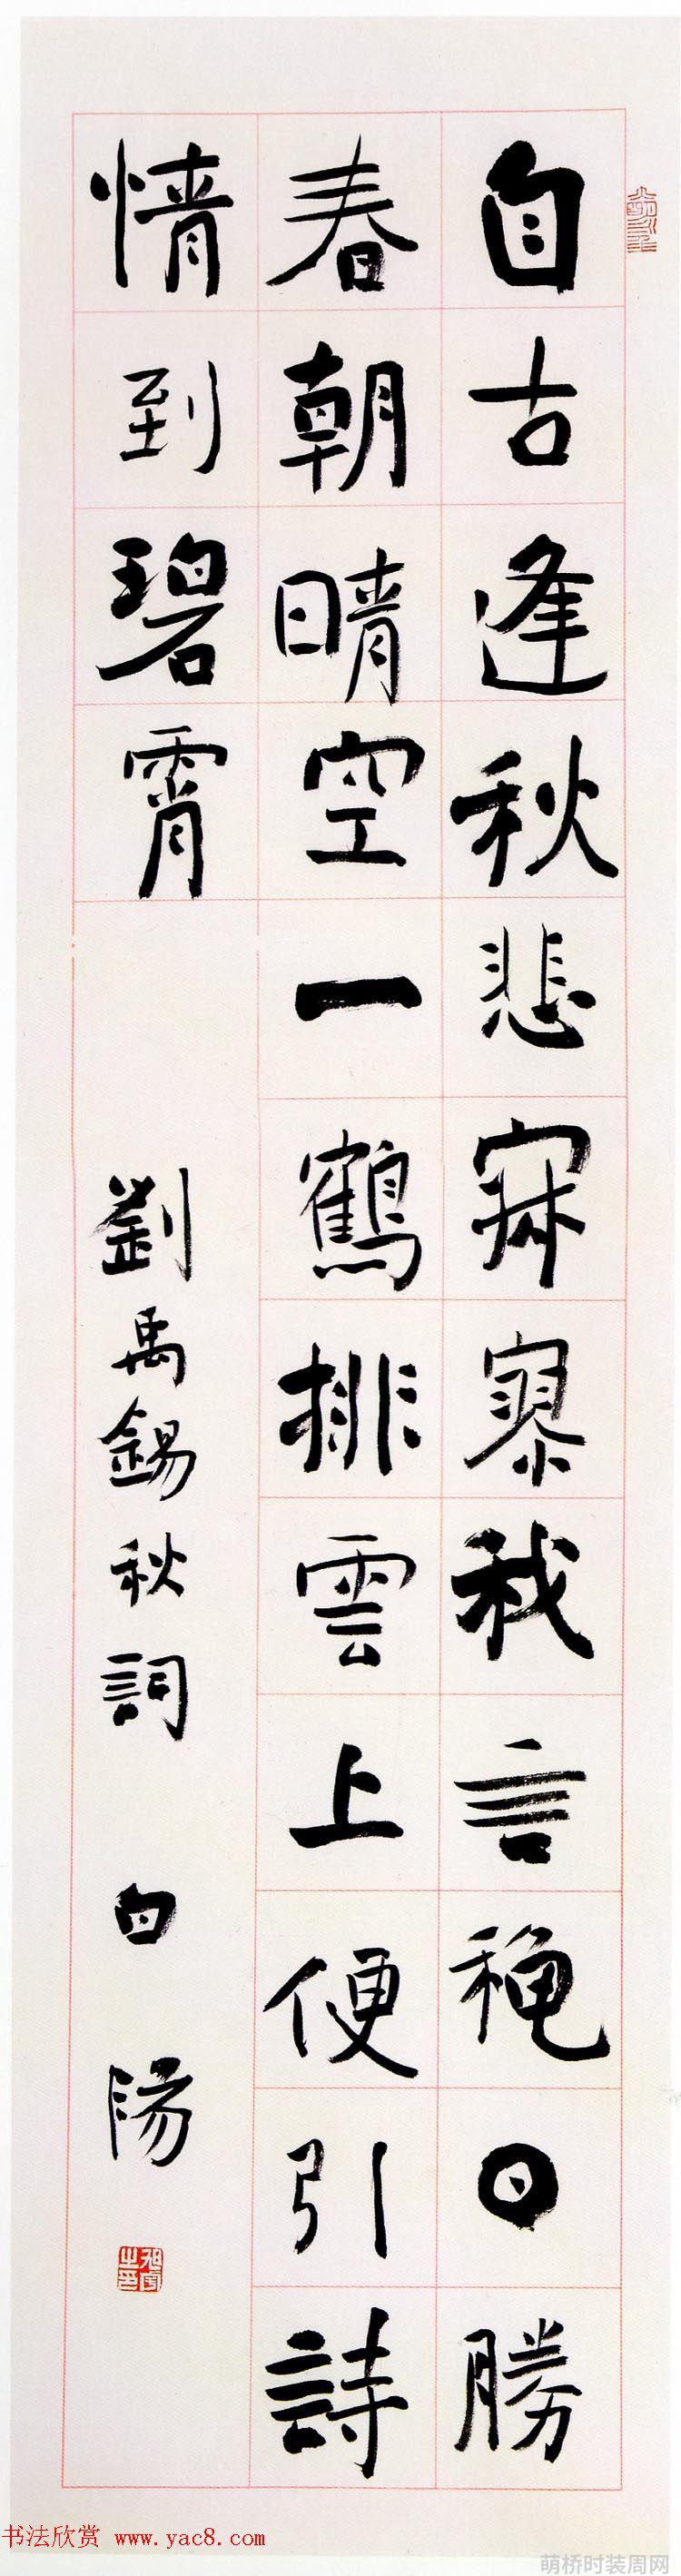 自古逢秋悲寂寥我言穐日勝
春朝晴空一鶴排雲上便引詩
情到碧霄
劉禹錫秋詞 白陽
旭宇之印
书法欣赏 www.yac8.com
萌桥时装周网